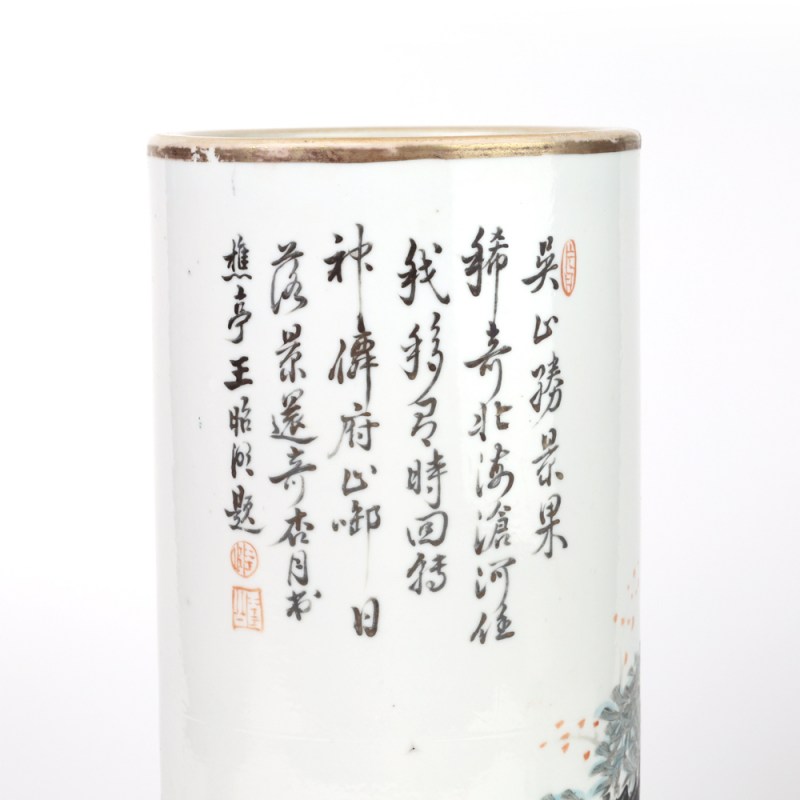 吳山勝景果
稀奇北海滄河任
我移有時回轉
神僊府山啣日
落景還奇杏月書
樵亭王昭明題